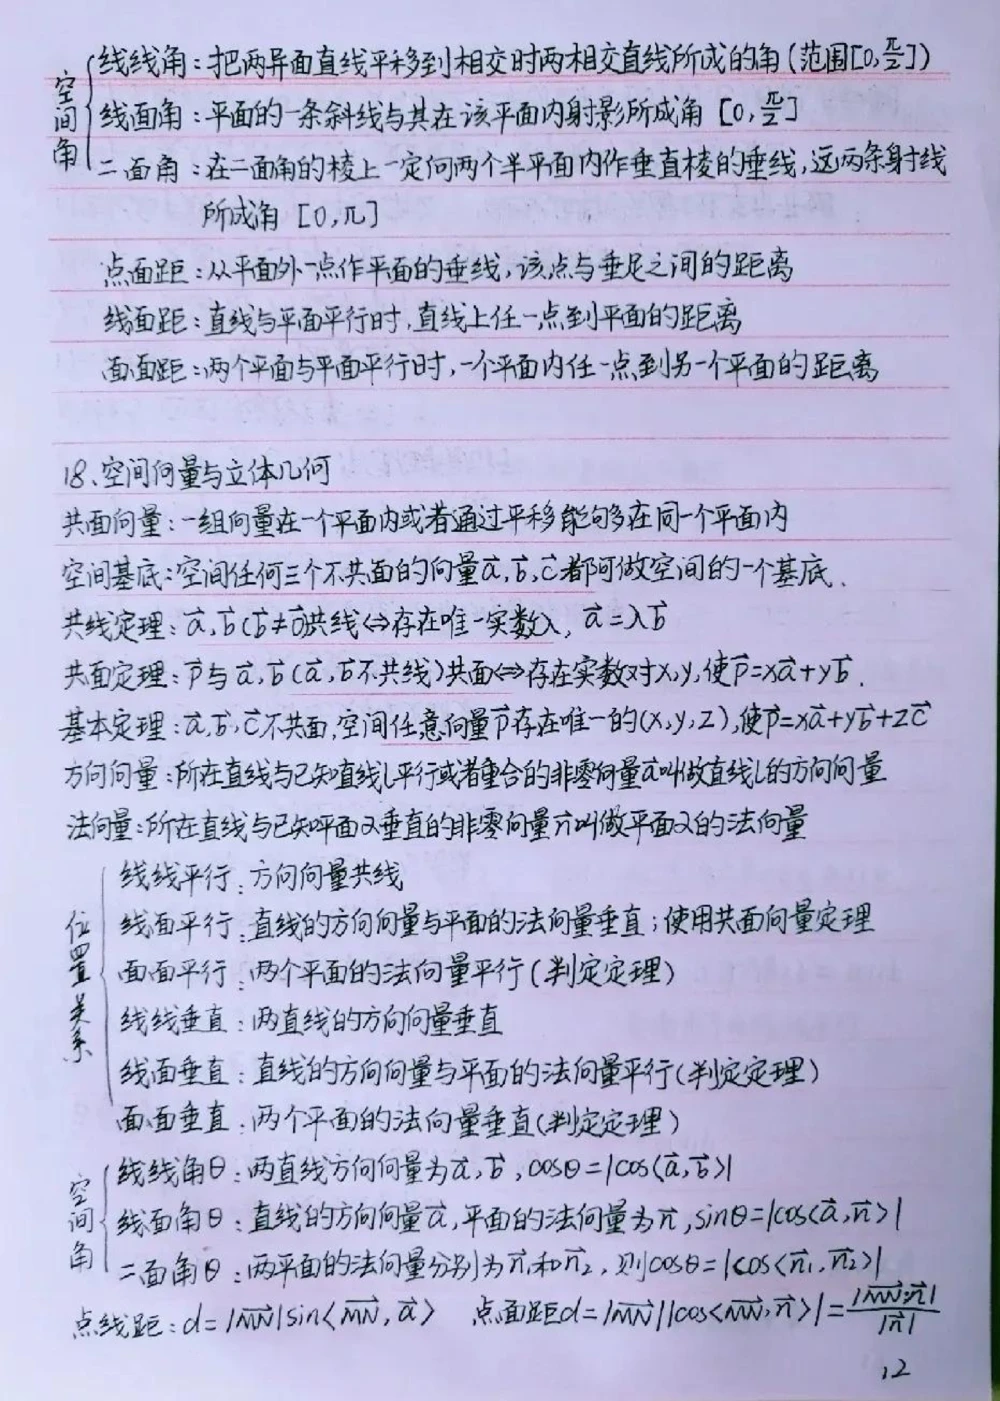 空间角
线线角：把两异面直线平移到相交时两相交直线所成的角(范围[0,π/2])
线面角：平面的一条斜线与其在该平面内射影所成角 [0,π/2]
二面角：在二面角的棱上一定向两个半平面内作垂直棱的垂线,这两条射线
所成角 [0,π]
点面距：从平面外一点作平面的垂线,该点与垂足之间的距离
线面距：直线与平面平行时,直线上任一点到平面的距离
面面距：两个平面与平面平行时,一个平面内任一点到另一个平面的距离
18、空间向量与立体几何
共面向量：一组向量在一个平面内或者通过平移能够在同一个平面内
空间基底：空间任何三个不共面的向量a⃗,b⃗,c⃗都可做空间的一个基底.
共线定理：a⃗,b⃗(b⃗≠0⃗)共线⇔存在唯一实数λ, a⃗=λb⃗
共面定理：p⃗与a⃗,b⃗(a⃗,b⃗不共线)共面⇔存在实数对x,y,使p⃗=xa⃗+yb⃗.
基本定理：a⃗,b⃗,c⃗不共面,空间任意向量p⃗存在唯一的(x,y,z),使p⃗=xa⃗+yb⃗+zc⃗
方向向量：所在直线与已知直线l平行或者重合的非零向量a⃗叫做直线l的方向向量
法向量：所在直线与已知平面α垂直的非零向量n⃗叫做平面α的法向量
位置关系
线线平行：方向向量共线
线面平行：直线的方向向量与平面的法向量垂直；使用共面向量定理
面面平行：两个平面的法向量平行(判定定理)
线线垂直：两直线的方向向量垂直
线面垂直：直线的方向向量与平面的法向量平行(判定定理)
面面垂直：两个平面的法向量垂直(判定定理)
空间角
线线角θ：两直线方向向量为a⃗,b⃗,cosθ=|cos⟨a⃗,b⃗⟩|
线面角θ：直线的方向向量a⃗,平面的法向量为n⃗,sinθ=|cos⟨a⃗,n⃗⟩|
二面角θ：两平面的法向量分别为n⃗₁和n⃗₂,则cosθ=|cos⟨n⃗₁,n⃗₂⟩|
点线距：d=|MN⃗|sin⟨MN⃗,a⃗⟩ 点面距d=|MN⃗||cos⟨MN⃗,n⃗⟩|=|MN⃗·n⃗|/|n⃗|
12